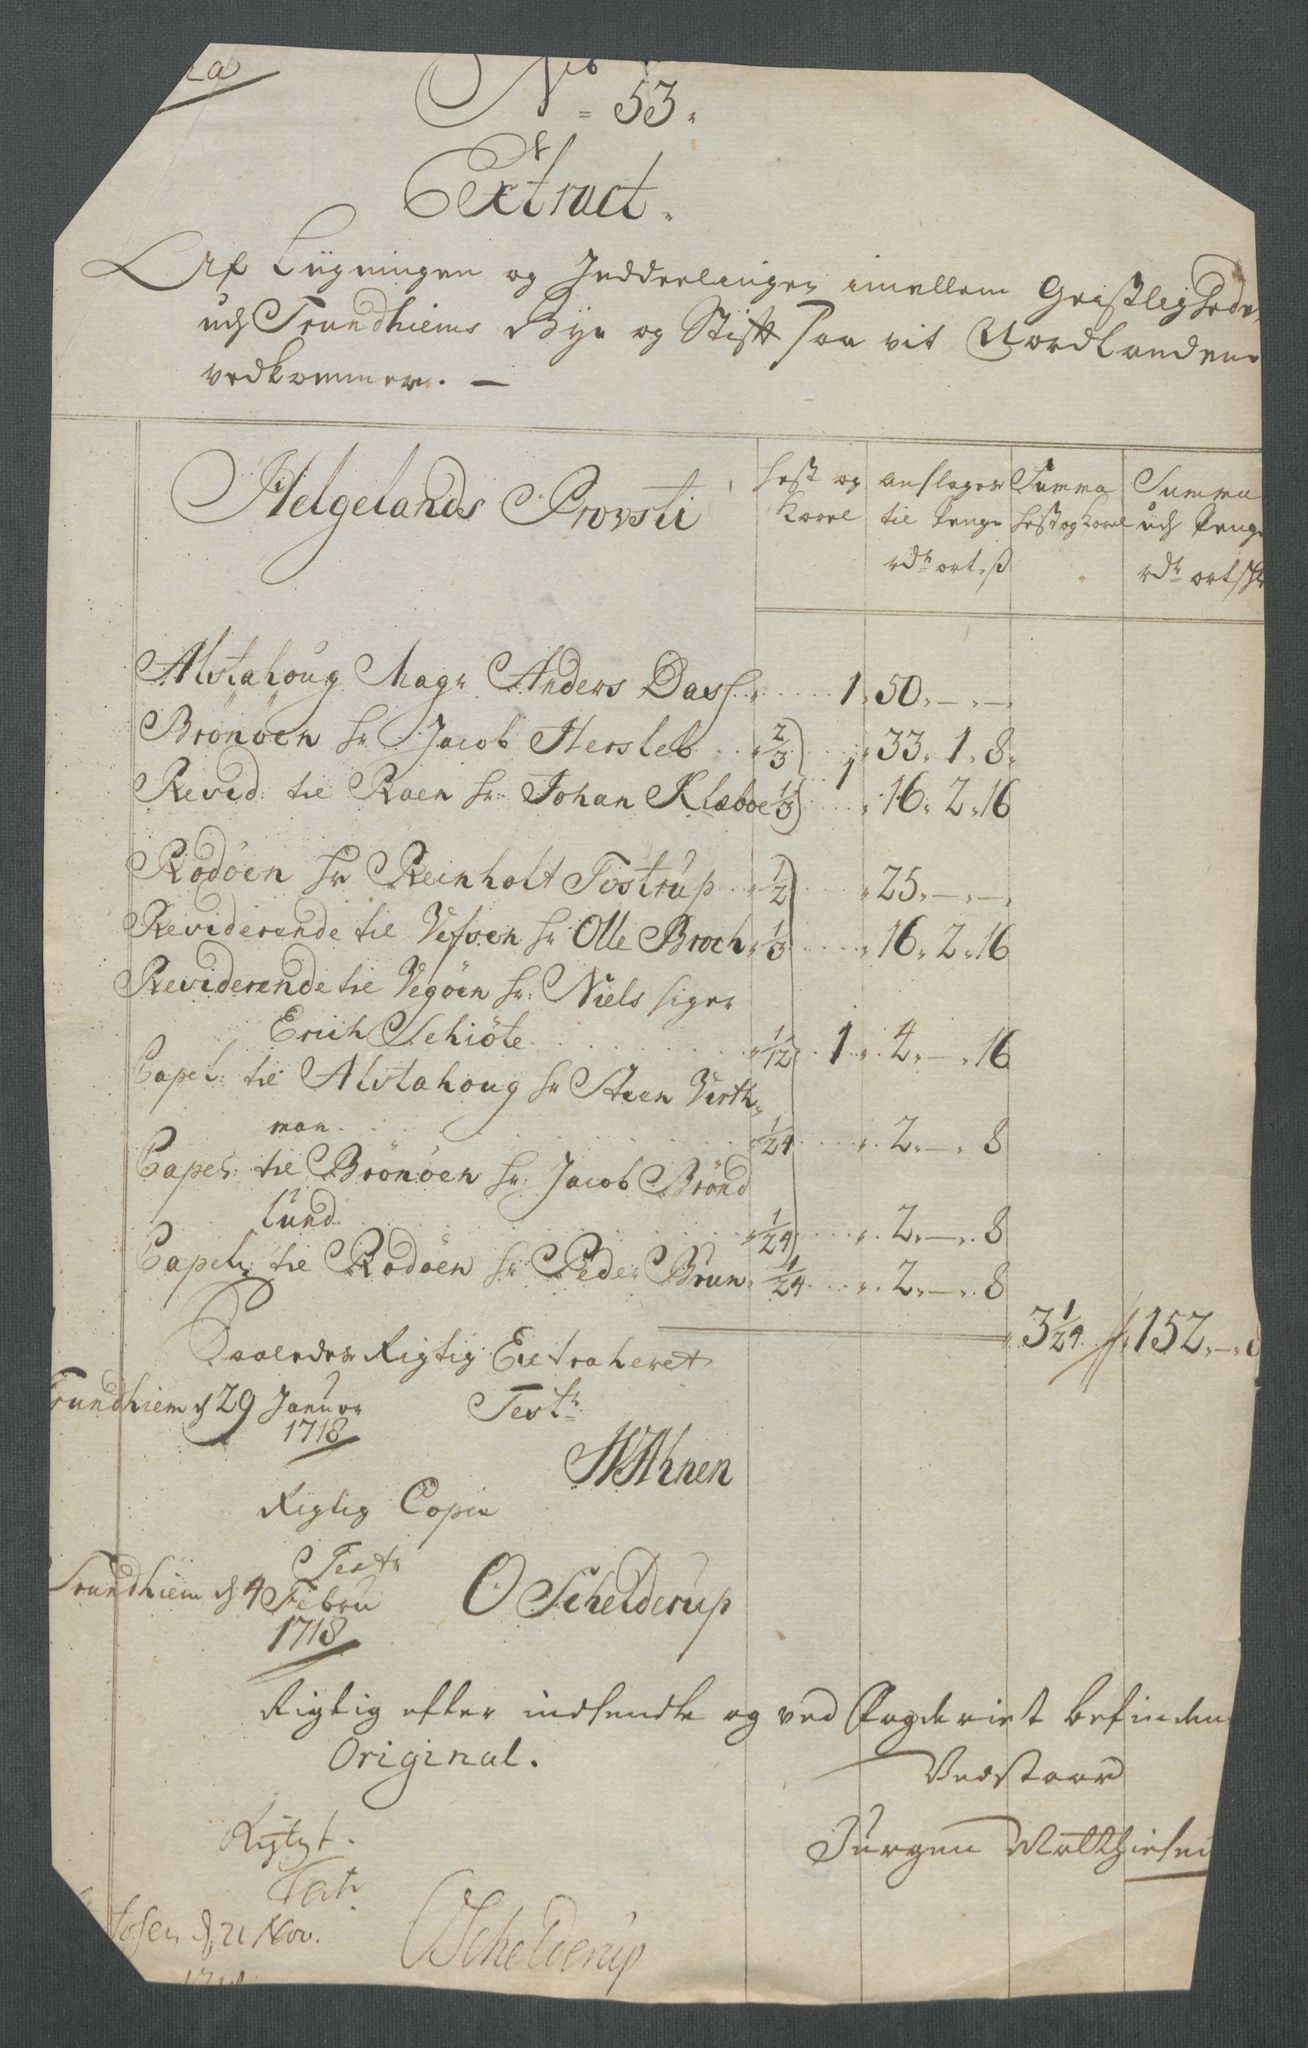 No
53.
Extract.
Af Ligningen og Inddeelingen imellem Geistligheden
ud Trundhiems Bye og Stift saa vit Nordlandene
vedkommer. —
Helgelands Provsti
hest og Karel
anslagen til Penge rdr ort. ß
Summa hest og Karel
Summa udj Penge rdr ort
Alstahoug Magr Anders Dass 1. 50. — . — .
Brönöen hr Jacob Hersleb 2/3 33. 1. 8.
Resid: til Raen hr. Johan Klæboe 1/3 1 16. 2. 16
Rodöen hr Reinholt Tostrup 1/2 25. — . — .
Residerende til Vefsen hr Olle Broch 1/3 16. 2. 16
Residerende til Vegöen hr: Niels
Erich Schiöte 1/12 1 4. — . 16
Capel: til Alstahoug hr Steen Virth-
man 1/24 2. — . 8
Capel: til Brönöen hr. Jacob Brönd
lund 1/24 2. — . 8
Capel: til Rodöen hr Peder Brun 1/24 2. — . 8
3 1/24 152. — . 8
Saaledes Rigtig Extraheret
Trundhiem d 29 Januar Testr
1718
WAhnen
Rigtig Copie
Testr
Trundhiem d 4 Febru O Schelderup
1718
Rigtig efter indsendte og ved Fogderiet befinden
Original.
Vedstaar
Rigtigt.
Jürgen Matthiesen
Test.
d 21 Nov. OSchelderup